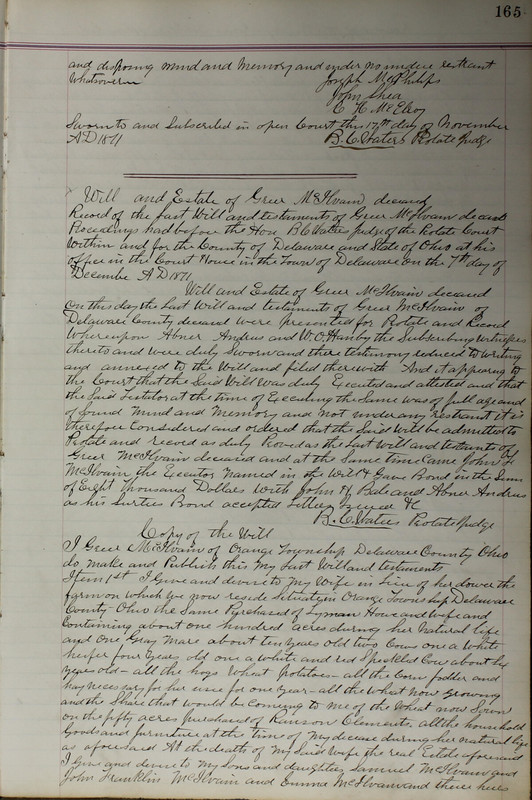 165
and disposing mind and Memory and under no undue restraint
Whatsoever
Joseph McPhilips
John Shea
C H McElroy
Sworn to and Subscribed in open Court this 17th day of November
AD 1871 B. C. Waters Probate Judge
Will and Estate of Greer McIlvain deceased
Record of the Last Will and testaments of Greer McIlvain deceased
Proceedings had before the Hon B C Waters Judge of the Probate Court
Within and for the County of Delaware and State of Ohio at his
office in the Court House in the Town of Delaware on the 7th day of
December AD 1871
Will and Estate of Greer McIlvain deceased
On this day the Last Will and testaments of Greer McIlvain of
Delaware County deceased were presented for Probate and Record
Whereupon Abner Andrus and W. O. Hanby the Subscribing witnesses
thereto and were duly Sworn and there testimony reduced to writing
and annexed to the Will and filed therewith And it appearing to
the Court that the Said Will was duly Executed and attested and that
the Said Testator at the time of Executing the Same was of full age and
of Sound Mind and Memory and not under any restraint it is
therefore Considered and ordered that the Said Will be admitted to
Probate and record as duly Proved as the Last Will and testaments of
Greer McIlvain deceased and at the Same time Came John F
McIlvain the Executor Named in the Will & Gave Bond in the Sum
of Eight Thousand Dollars With John H and Abner Andrus
as his Surties Bond accepted Letters &C
B. C. Waters Probate Judge
Copy of the Will
I Greer McIlvain of Orange Township Delaware County Ohio
do make and Publish this My Last Will and testaments
Item 1st I Give and devise to My Wife in Lieu of her dower the
farm on which we now reside Situate in Orange Township Delaware
County Ohio the Same Purchased of Lyman Howe and Wife and
Containing about one hundred acres during her Natural life
and One Gray Mare about ten years old two Cows one a White
heifer four years old one a white and red Speckled Cow about Six
years old - all the hogs Wheat Potatoes - all the Corn fodder and
hay necessary for her use for one year - all the wheat now growing
and the Share that would be Coming to me of the Wheat now Sown
on the fifty acres purchased of Ranson Clements, all the household
Goods and furniture at the time of My decease during her natural life
as aforesaid At the death of My Said Wife the real Estate aforesaid
I Give and devise to My Sons and daughter Samuel McIlvain and
John Franklin McIlvain and Emma McIlvain and there heirs